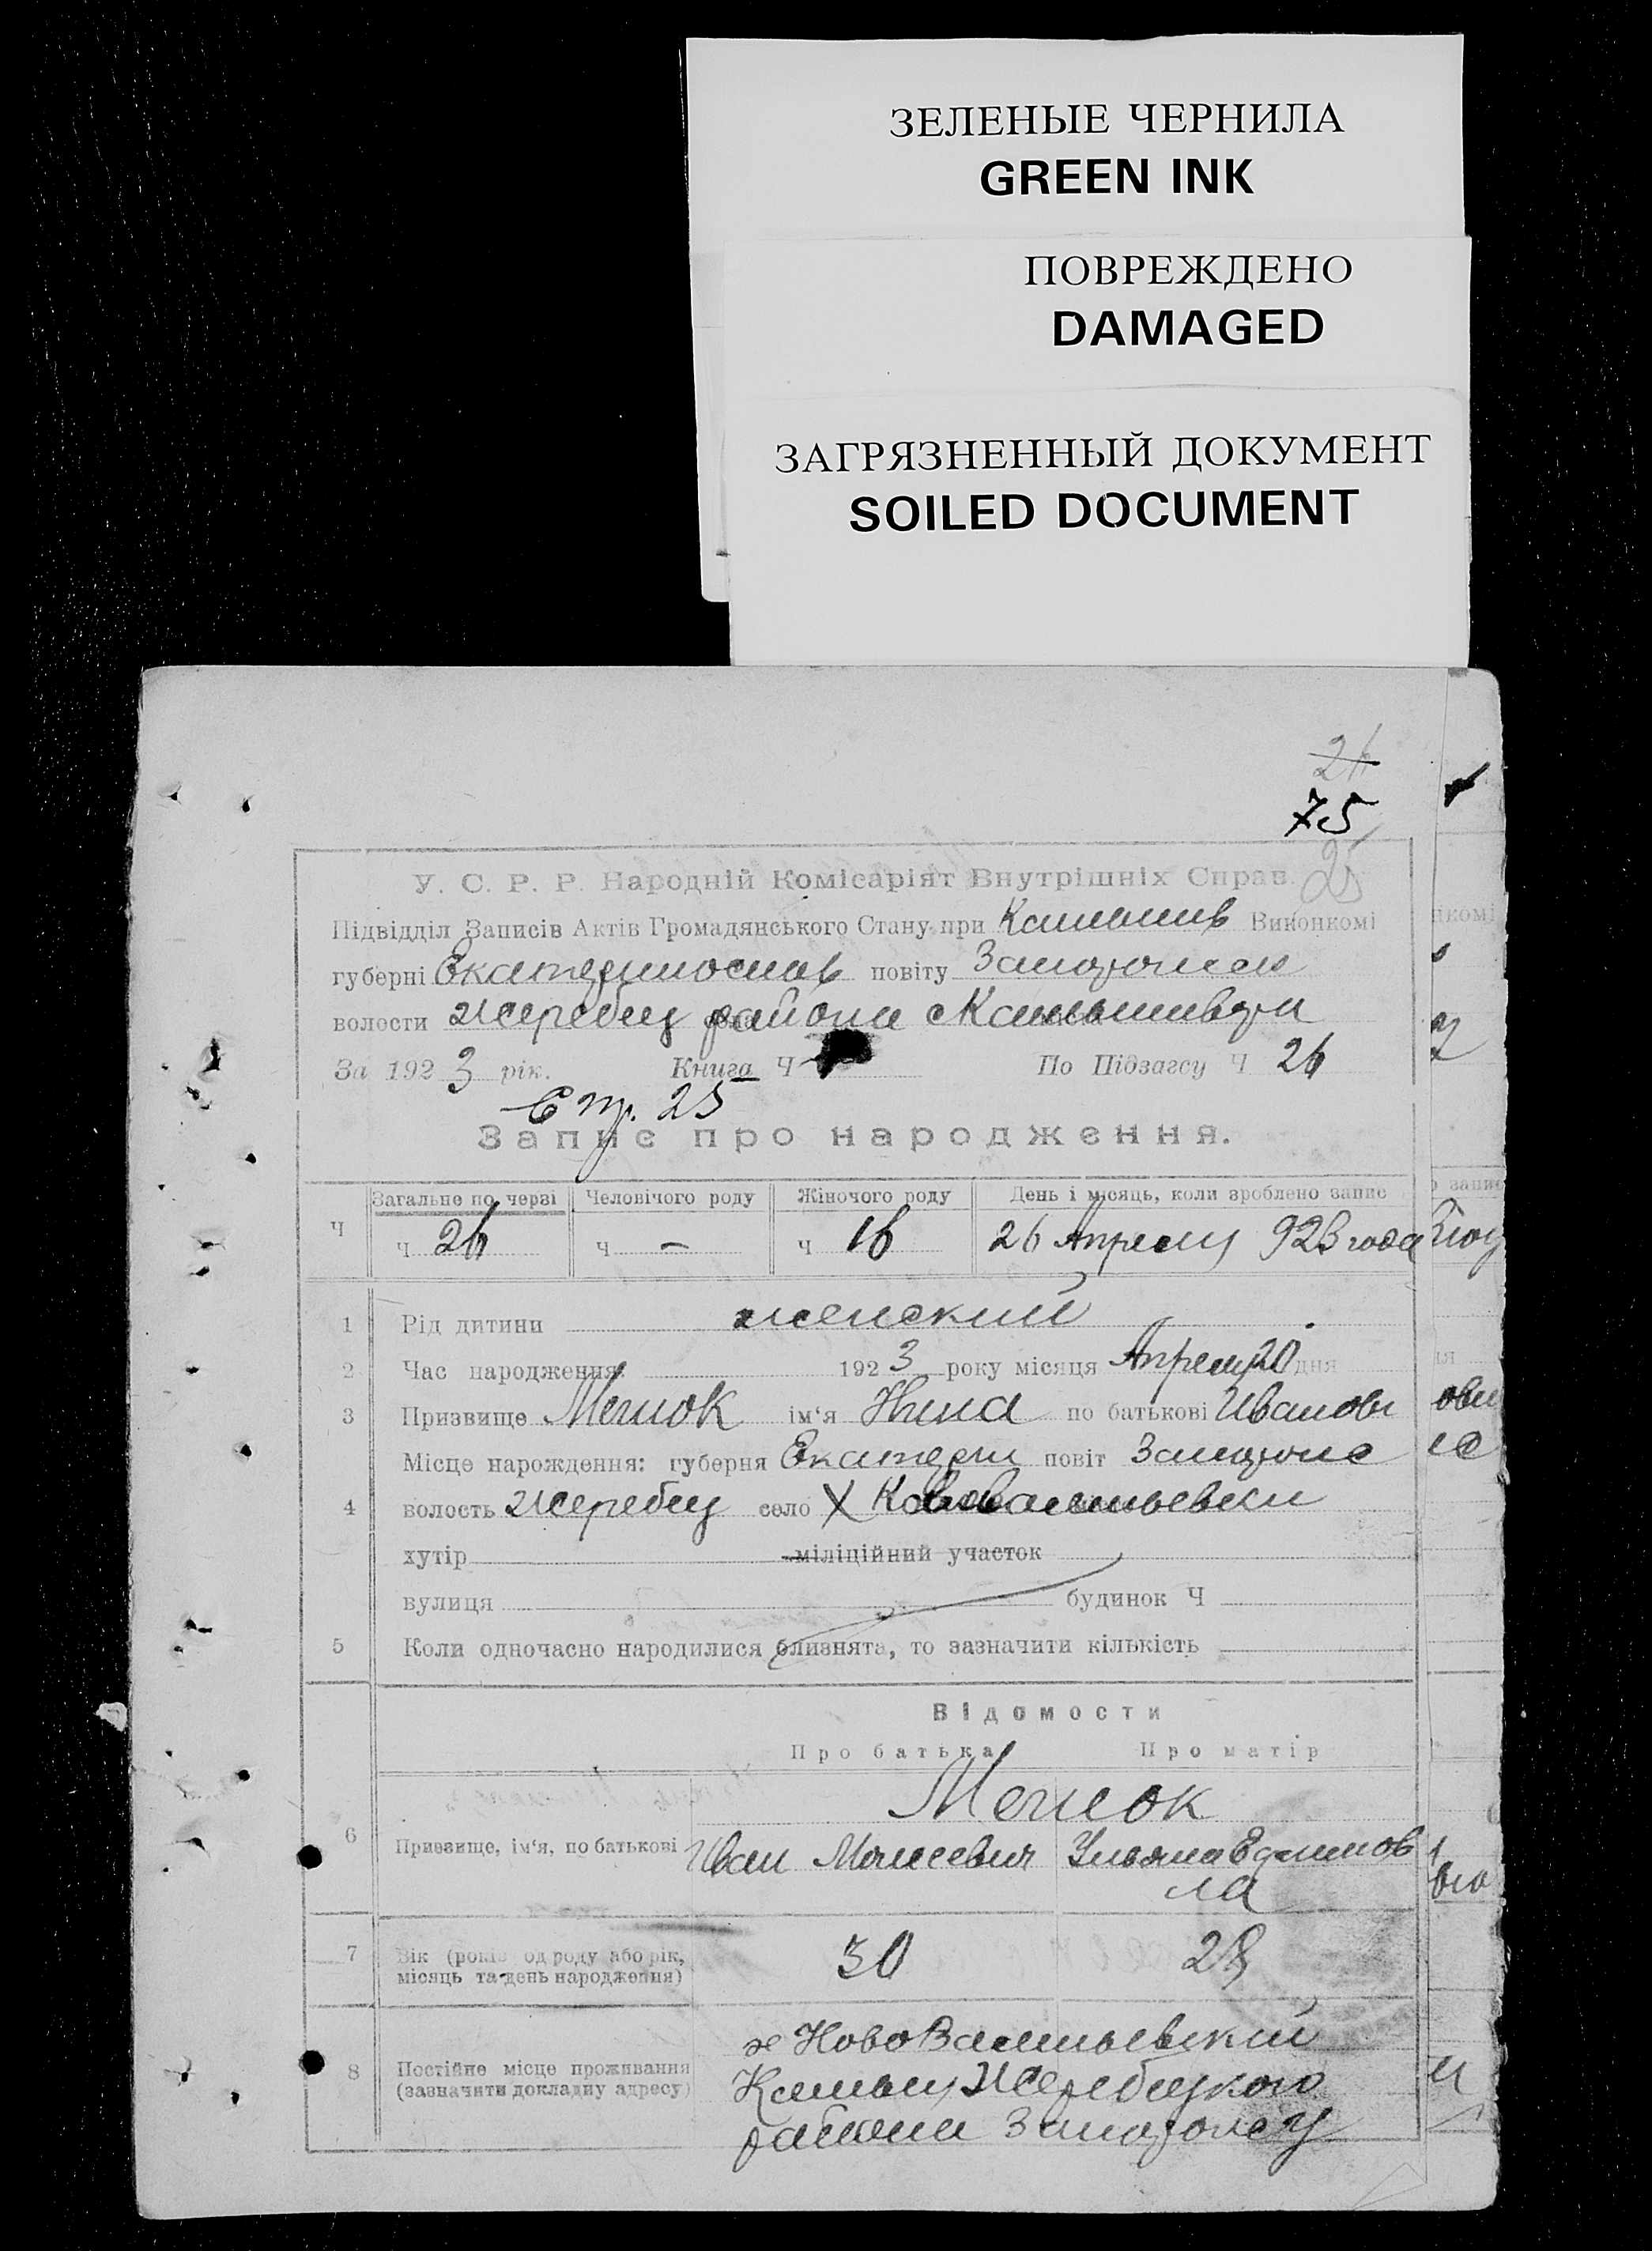 ЗЕЛЕНЫЕ ЧЕРНИЛА
GREEN INK
ПОВРЕЖДЕНО
DAMAGED
ЗАГРЯЗНЕННЫЙ ДОКУМЕНТ
SOILED DOCUMENT
26
75
25
У. С. Р. Р. Народній Комісаріят Внутрішніх Справ.
Підвідділ Записів Актів Громадянського Стану при Камышев Виконкомі
губерні Екатеринослав повіту Запорожск
волости Жеребец района
За 1923 рік. Книга Ч По Підзагсу Ч 26
Стр. 25
Запис про народження.
Загальне по черзі Человічого роду Жіночого роду День і місяць, коли зроблено запис
Ч ч 26 ч — ч 16 26 Апреля 923 года
1 Рід дитини женский
2 Час народження 1923 року місяця Апреля 20 дня
3 Призвище Мешок ім'я Нина по батькові Иванов
Місце нарождення: губерня Екатерин повіт Запорожс
4 волость Жеребец село Х
хутір міліційний участок
вулиця будинок Ч
5 Коли одночасно народилися близнята, то зазначити кількість
Відомости
Про батька Про матір
Мешок
6 Призвище, ім'я, по батькові Иван Моисеевич Ульяна Ефимов
на
7 Вік (років од роду або рік, 30 28
місяць та день народження)
х НовоВасильевский
8 Постійне місце проживання Жеребецкого
(зазначити докладну адресу) района Запорожск